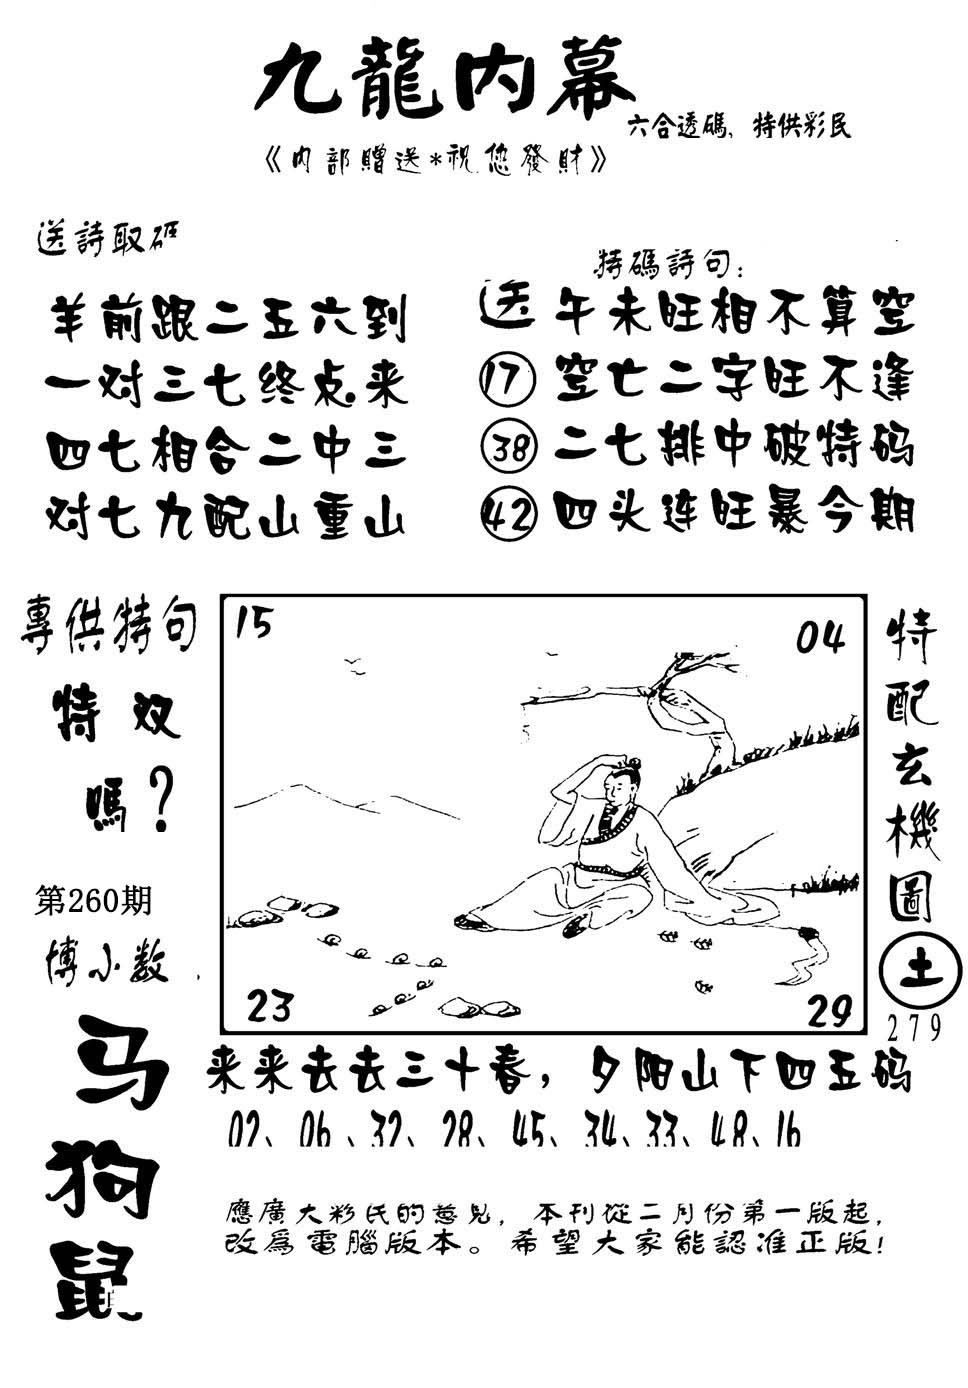 九龍内幕
六合透碼、特供彩民
《内部贈送*祝您發財》
送詩取码
羊前跟二五六到
一对三七终点来
四七相合二中三
对七九配山重山
特碼詩句:
送 午未旺相不算空
17 空亡二字旺不逢
38 二七排中破特码
42 四头连旺暴今期
專供特句
特效
嗎?
第260期
博小数
马
狗
鼠
15
04
23
29
特配玄機圖
土
279
来来去去三十春，夕阳山下四五码
02、06、32、28、45、34、33、48、16
應廣大彩民的意見，本刊從二月份第一版起，
改爲電腦版本。希望大家能認准正版!